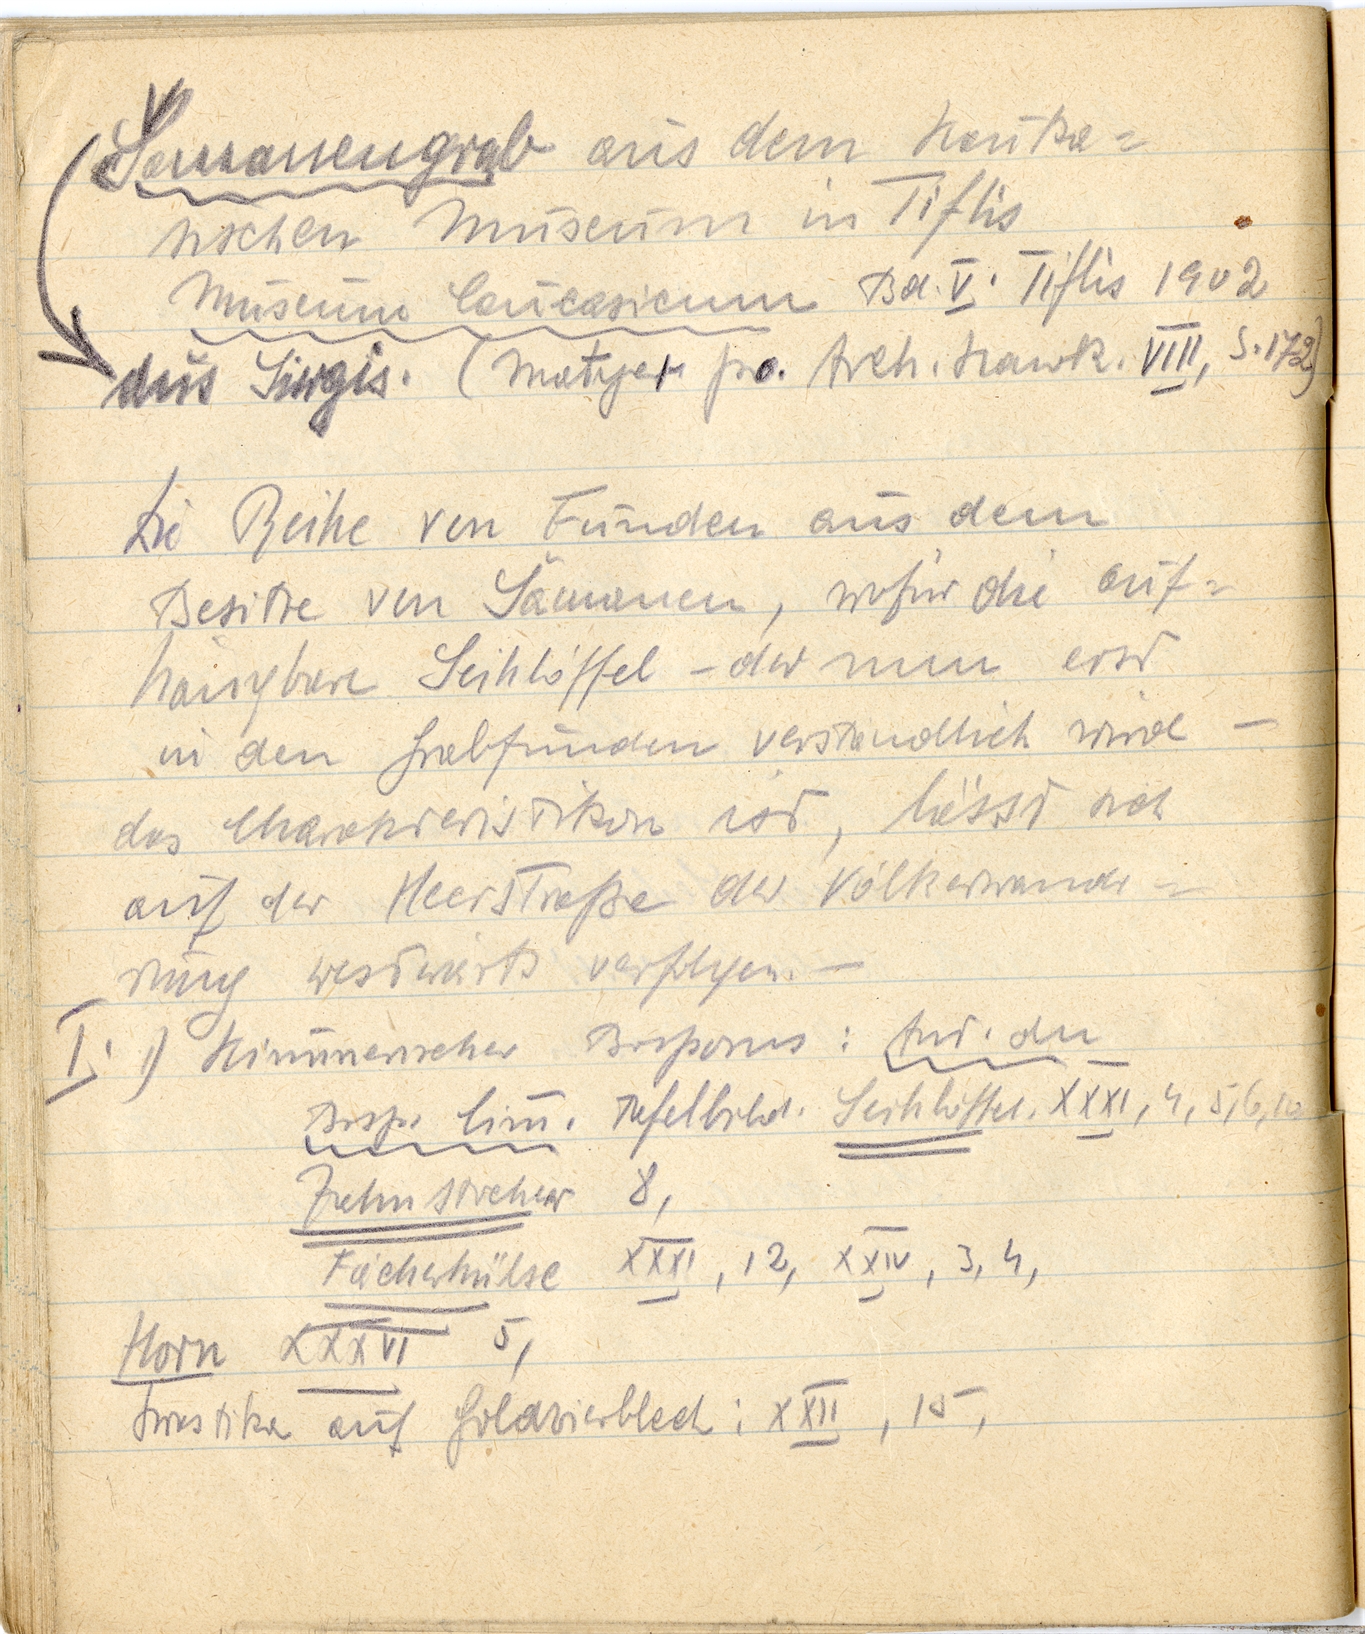 Samanengrab aus dem Kauka=
sischen Museum in Tiflis
Museum Caucasicum Bd. V. Tiflis 1902
aus (Matyer po. Arch. Kawk. VIII, S. 172)
Die Reihe von Funden aus dem
Besitze von Sämanen, wofür die auf=
hängbare Seihlöffel – der nun erst
in den Grabfunden verständlich wird –
das Charakteristikon ist, lässt sich
auf der Heerstraße der Völkerwande=
rung westwärts verfolgen. –
I. 1) Kimmerischer Bosporus: Ant. du
Bosp. Cim. Tafelbild. Seihlöffel. XXXI, 4, 5, 6, 10
8,
Fächerhülse XXXI, 12, XXIV, 3, 4,
Horn XXXVI 5,
Swastika auf Goldzierblech: XXII, 15,